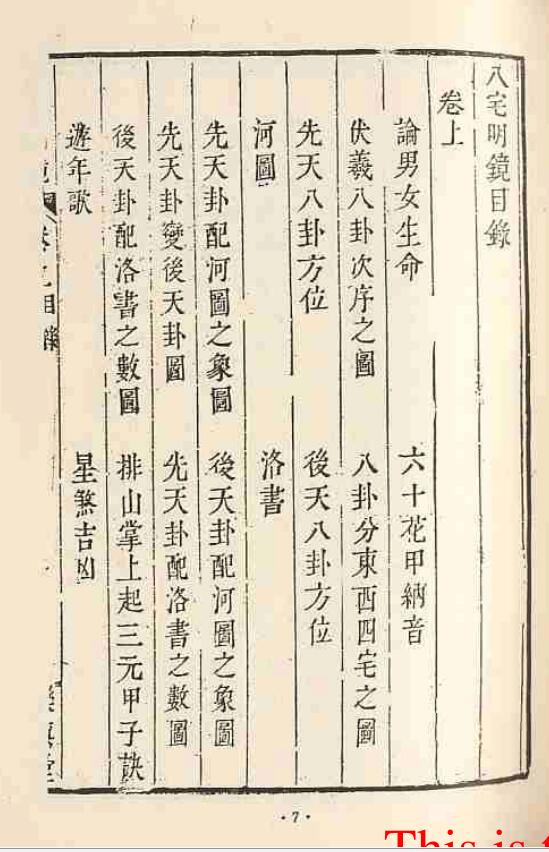 八宅明鏡目錄
卷上
論男女生命 六十花甲納音
伏羲八卦次序之圖 八卦分東西四宅之圖
先天八卦方位 後天八卦方位
河圖 洛書
先天卦配河圖之象圖 後天卦配河圖之象圖
先天卦變後天卦圖 先天卦配洛書之數圖
後天卦配洛書之數圖 排山掌上起三元甲子訣
遊年歌 星煞吉凶
·7·
This is